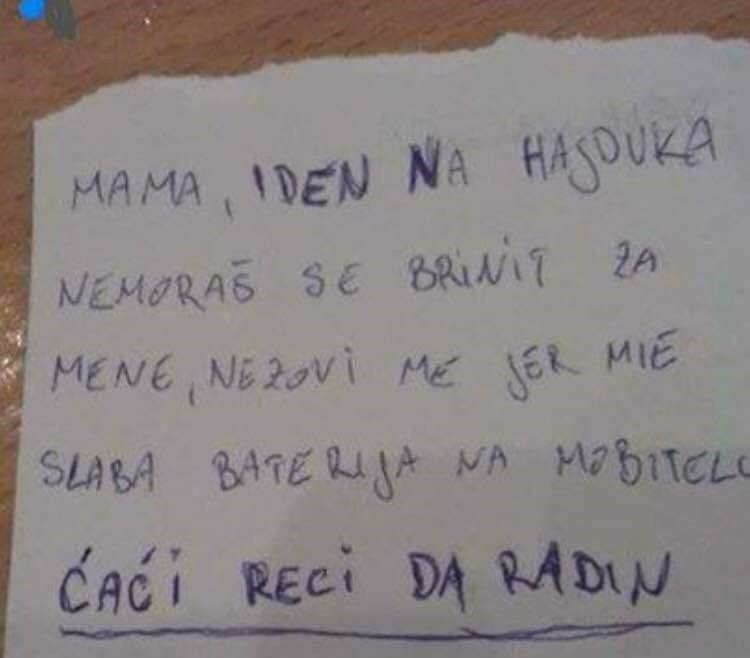 MAMA, IDEN NA HAJDUKA
NEMORAŠ SE BRINIT ZA
MENE, NEZOVI ME JER MIE
SLABA BATERIJA NA MOBITELU
ĆAĆI RECI DA RADIN